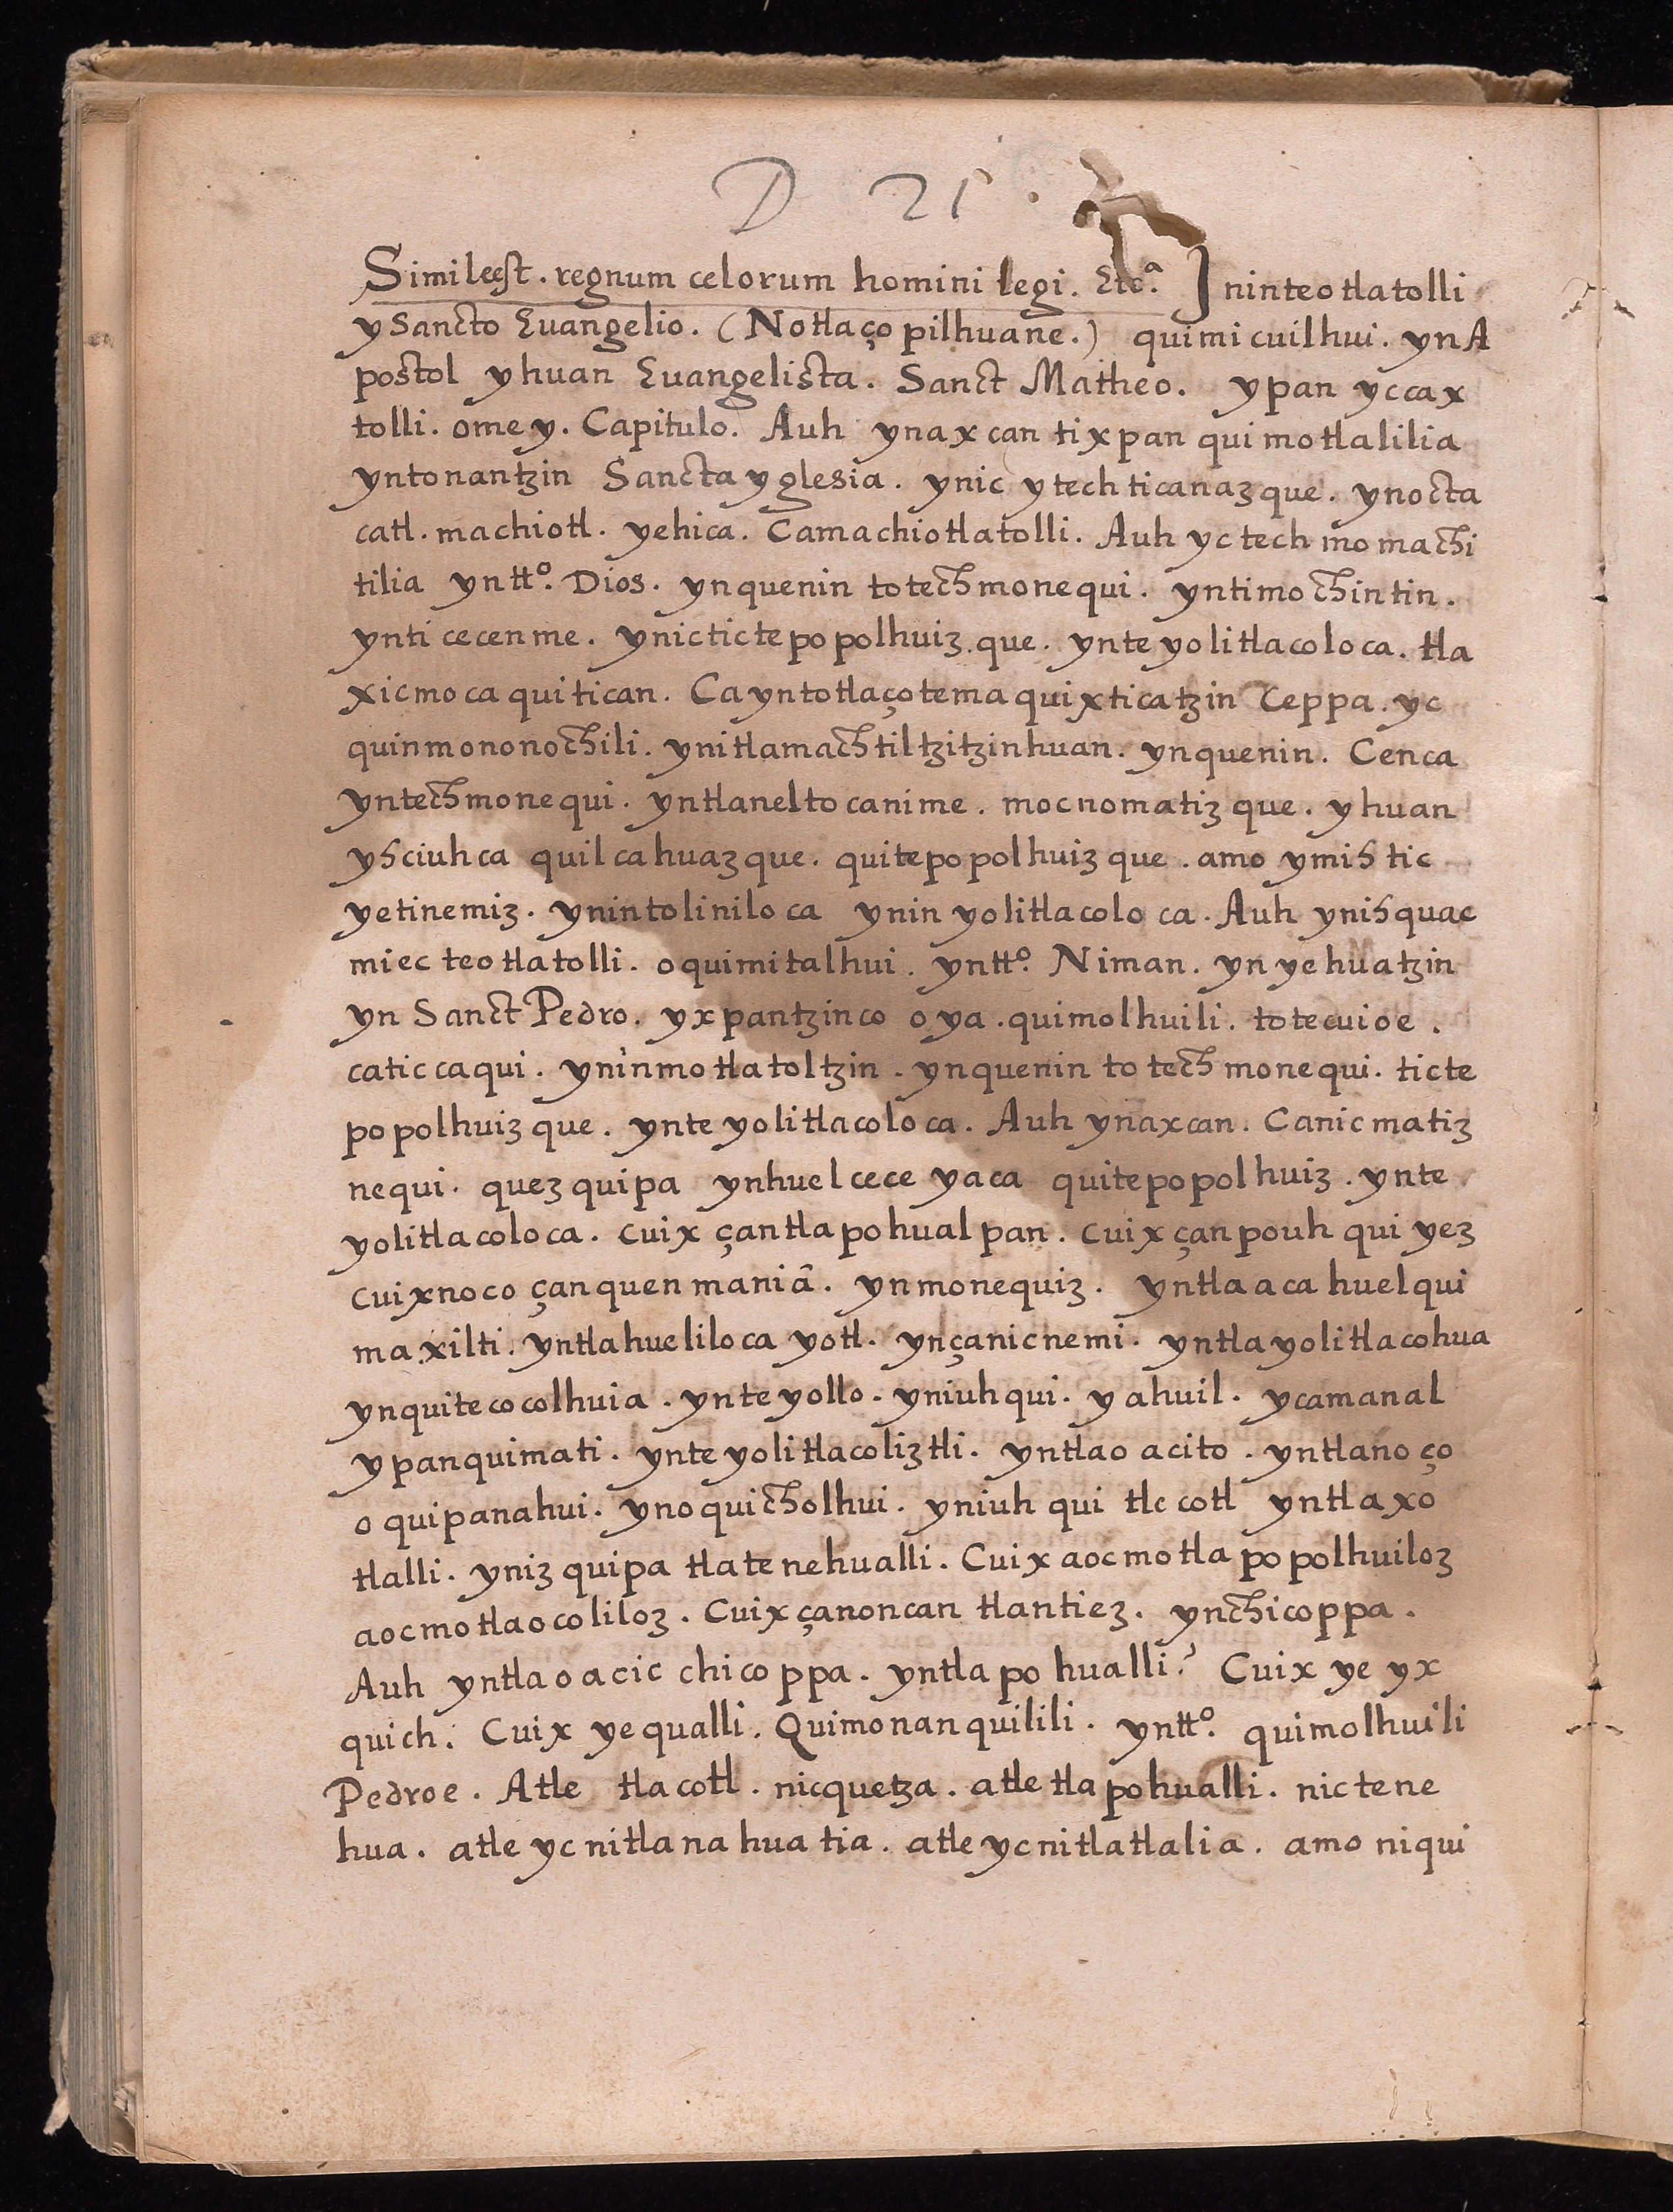 D 21.
Simileest. regnum celorum homini legi. Etc.ª Ininteotlatolli
y Sancto Euangelio. (Notlaçopilhuane.) quimicuilhui. ynA
postol yhuan Euangelista. Sanct Matheo. ypan yccax
tolli. omey. Capitulo. Auh ynaxcan tixpan quimotlalilia
yntonantzin Sancta yglesia. ynic ytech ticanazque. ynocta
catl. machiotl. yehica. Camachiotlatolli. Auh yc tech momachi
tilia yntt.º Dios. ynquenin totechmonequi. yntimochintin.
ynticecenme. ynictictepopolhuiz.que. ynteyolitlacoloca. tla
xicmocaquitican. Cayntotlaçotemaquixticatzin Ceppa. yc
quinmononochili. ynitlamachtiltzitzinhuan. ynquenin. Cenca
yntechmonequi. yntlaneltocanime. mocnomatizque. yhuan
ysciuhca quilcahuazque. quitepopolhuizque. amo ymistic
yetinemiz. ynintoliniloca ynin yolitlacoloca. Auh ynisquac
miec teotlatolli. oquimitalhui. yntt.º Niman. yn yehuatzin
yn Sanct Pedro. yxpantzinco oya. quimolhuili. totecuioe.
caticcaqui. yninmotlatoltzin. ynquenin totechmonequi. ticte
popolhuizque. ynteyolitlacoloca. Auh ynaxcan. Canicmatiz
nequi. quezquipa ynhuelcece yaca quitepopolhuiz. ynte
yolitlacoloca. Cuix çantlapohualpan. Cuix çanpouhqui yez
cuixnoco çanquenmaniã. ynmonequiz. yntlaaca huelqui
maxilti. yntlahuelilocayotl. ynçanicnemi. yntlayolitlacohua
ynquitecocolhuia. ynteyollo. yniuhqui. yahuil. ycamanal
ypanquimati. ynteyolitlacoliztli. yntlao acito. yntlanoço
oquipanahui. ynoquicholhui. yniuhqui tlecotl yntlaxo
tlalli. ynizquipa tlatenehualli. Cuix aocmotlapopolhuiloz
aocmotlaocoliloz. Cuix çanoncan tlantiez. ynchicoppa.
Auh yntlaoacic chicoppa. yntlapohualli? Cuix ye yx
quich. Cuix yequalli. Quimonanquilili. yntt.º quimolhuili
Pedroe. Atle tlacotl. nicquetza. atletlapohualli. nictene
hua. atle yc nitlanahuatia. atle yc nitlatlalia. amo niqui